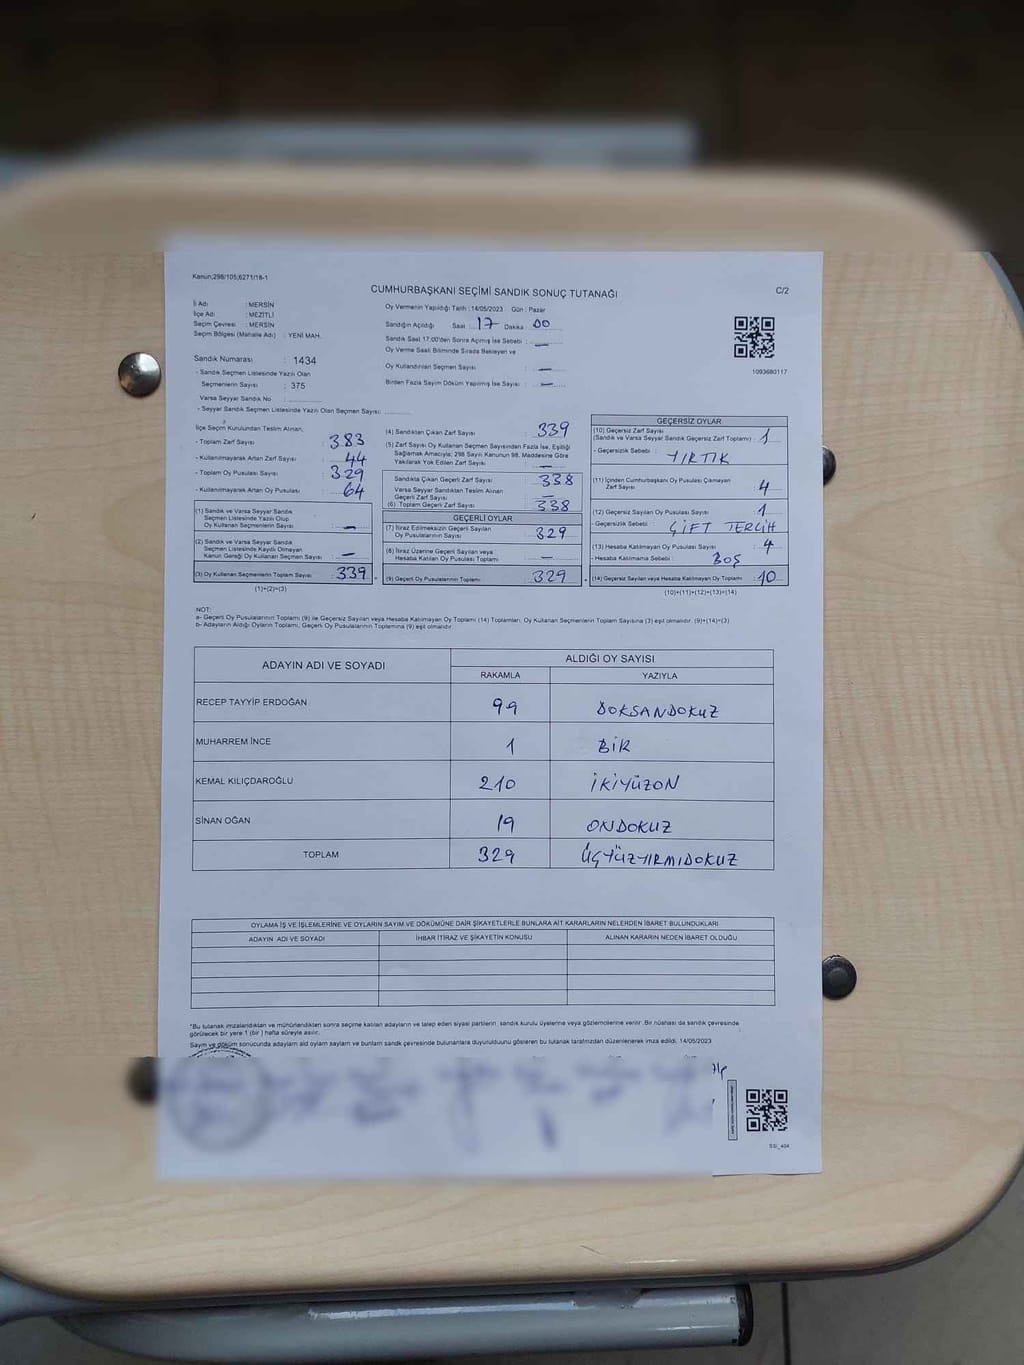 Kanun;298/105;6271/18-1
CUMHURBAŞKANI SEÇİMİ SANDIK SONUÇ TUTANAĞI
C/2
İl Adı : MERSİN
İlçe Adı : MEZİTLİ
Seçim Çevresi : MERSİN
Seçim Bölgesi (Mahalle Adı) : YENİ MAH.
Sandık Numarası : 1434
- Sandık Seçmen Listesinde Yazılı Olan
Seçmenlerin Sayısı : 375
Varsa Seyyar Sandık No :
- Seyyar Sandık Seçmen Listesinde Yazılı Olan Seçmen Sayısı:
Oy Vermenin Yapıldığı Tarih : 14/05/2023 Gün : Pazar
Sandığın Açıldığı Saat 17 Dakika 00
Sandık Saat 17:00'den Sonra Açılmış İse Sebebi : —
Oy Verme Saati Bitiminde Sırada Bekleyen ve
Oy Kullandırılan Seçmen Sayısı : —
Birden Fazla Sayım Döküm Yapılmış İse Sayısı : —
1093680117
İlçe Seçim Kurulundan Teslim Alınan;
- Toplam Zarf Sayısı : 383
- Kullanılmayarak Artan Zarf Sayısı : 44
- Toplam Oy Pusulası Sayısı : 329
- Kullanılmayarak Artan Oy Pusulası : 64
(1) Sandık ve Varsa Seyyar Sandık
Seçmen Listesinde Yazılı Olup
Oy Kullanan Seçmenlerin Sayısı : —
(2) Sandık ve Varsa Seyyar Sandık
Seçmen Listesinde Kayıtlı Olmayan
Kanun Gereği Oy Kullanan Seçmen Sayısı : —
(3) Oy Kullanan Seçmenlerin Toplam Sayısı : 339
(1)+(2)=(3)
(4) Sandıktan Çıkan Zarf Sayısı : 339
(5) Zarf Sayısı Oy Kullanan Seçmen Sayısından Fazla İse, Eşitliği
Sağlamak Amacıyla; 298 Sayılı Kanunun 98. Maddesine Göre
Yakılarak Yok Edilen Zarf Sayısı : —
Sandıkta Çıkan Geçerli Zarf Sayısı : 338
Varsa Seyyar Sandıktan Teslim Alınan
Geçerli Zarf Sayısı : —
(6) Toplam Geçerli Zarf Sayısı : 338
GEÇERLİ OYLAR
(7) İtiraz Edilmeksizin Geçerli Sayılan
Oy Pusulalarının Sayısı : 329
(8) İtiraz Üzerine Geçerli Sayılan veya
Hesaba Katılan Oy Pusulası Toplamı : —
(9) Geçerli Oy Pusulalarının Toplamı : 329
GEÇERSİZ OYLAR
(10) Geçersiz Zarf Sayısı
(Sandık ve Varsa Seyyar Sandık Geçersiz Zarf Toplamı) : 1
- Geçersizlik Sebebi : YIRTIK
(11) İçinden Cumhurbaşkanı Oy Pusulası Çıkmayan
Zarf Sayısı : 4
(12) Geçersiz Sayılan Oy Pusulası Sayısı : 1
- Geçersizlik Sebebi : ÇİFT TERCİH
(13) Hesaba Katılmayan Oy Pusulası Sayısı : 4
- Hesaba Katılmama Sebebi : BOŞ
(14) Geçersiz Sayılan veya Hesaba Katılmayan Oy Toplamı : 10
(10)+(11)+(12)+(13)=(14)
NOT:
a- Geçerli Oy Pusulalarının Toplamı (9) ile Geçersiz Sayılan veya Hesaba Katılmayan Oy Toplamı (14) Toplamları, Oy Kullanan Seçmenlerin Toplam Sayısına (3) eşit olmalıdır. (9)+(14)=(3)
b- Adayların Aldığı Oyların Toplamı, Geçerli Oy Pusulalarının Toplamına (9) eşit olmalıdır.
ADAYIN ADI VE SOYADI
ALDIĞI OY SAYISI
RAKAMLA YAZIYLA
RECEP TAYYİP ERDOĞAN 99 DOKSANDOKUZ
MUHARREM İNCE 1 BİR
KEMAL KILIÇDAROĞLU 210 İKİYÜZON
SİNAN OĞAN 19 ONDOKUZ
TOPLAM 329 ÜÇYÜZYIRMIDOKUZ
OYLAMA İŞ VE İŞLEMLERİNE VE OYLARIN SAYIM VE DÖKÜMÜNE DAİR ŞİKAYETLERLE BUNLARA AİT KARARLARIN NELERDEN İBARET BULUNDUKLARI
ADAYIN ADI VE SOYADI İHBAR İTİRAZ VE ŞİKAYETİN KONUSU ALINAN KARARIN NEDEN İBARET OLDUĞU
*Bu tutanak imzalandıktan ve mühürlendikten sonra seçime katılan adayların ve talep eden siyasi partilerin sandık kurulu üyelerine veya gözlemcilerine verilir. Bir nüshası da sandık çevresinde
görülecek bir yere 1 (bir) hafta süreyle asılır.
Sayım ve döküm sonucunda adayların aldı oyların sayların ve bunların sandık çevresinde bulunanlara duyurulduunu gösteren bu tutanak tarafımızdan düzenlenerek imza edildi. 14/05/2023